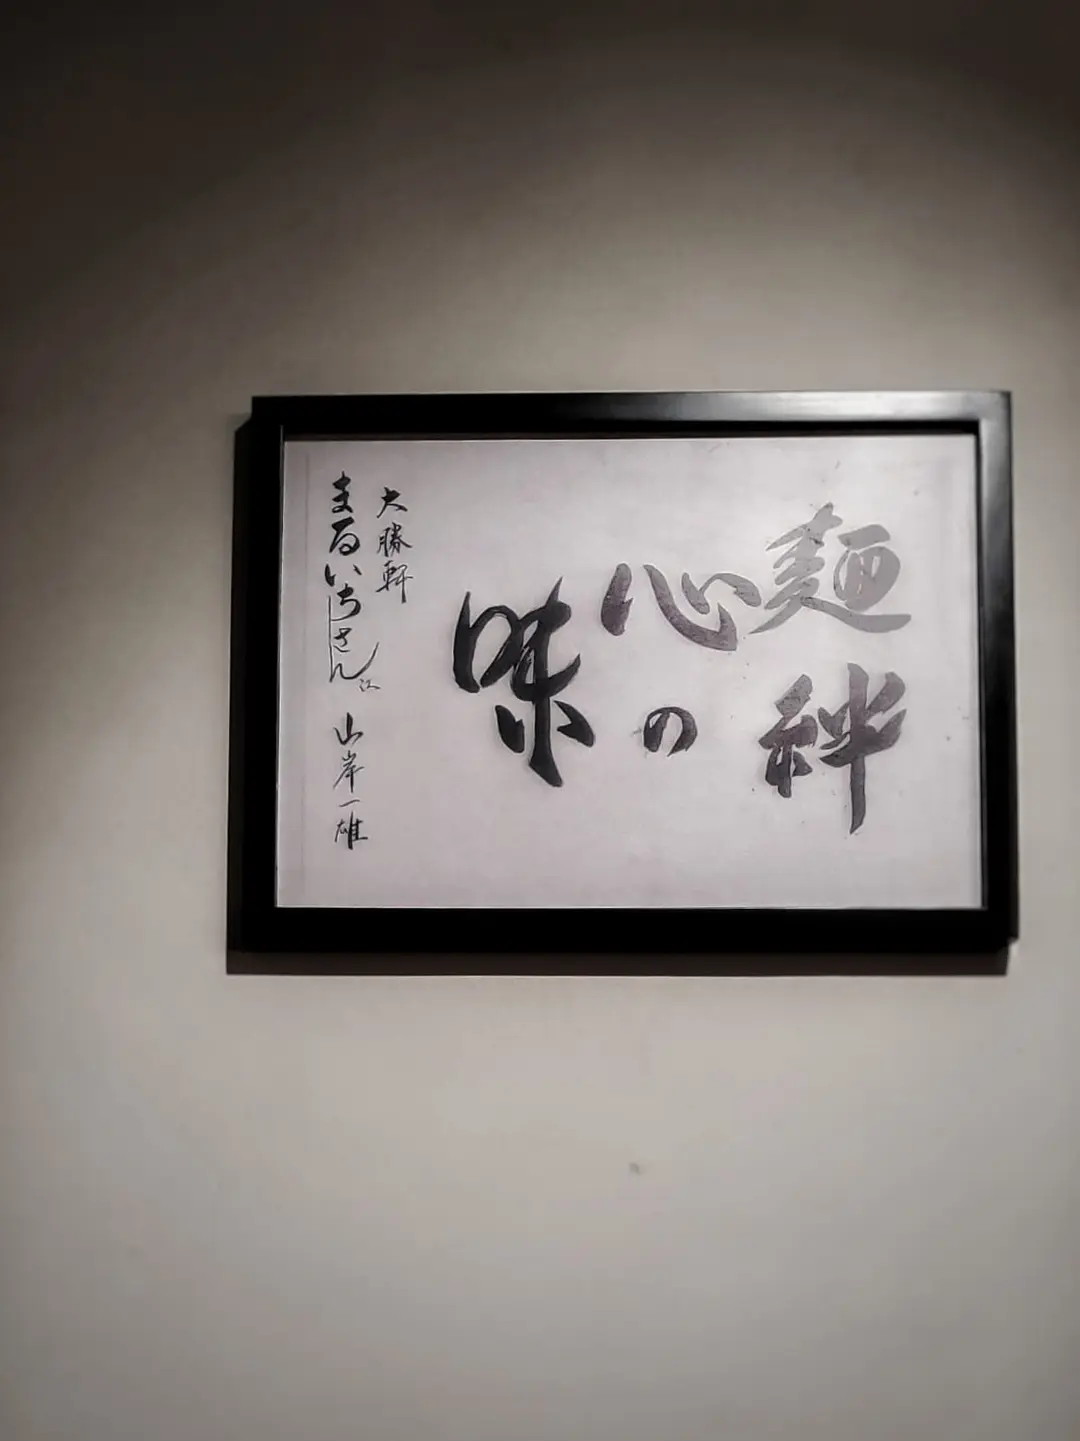 麺絆
心の
味
大勝軒
まるいちさん江
山岸一雄